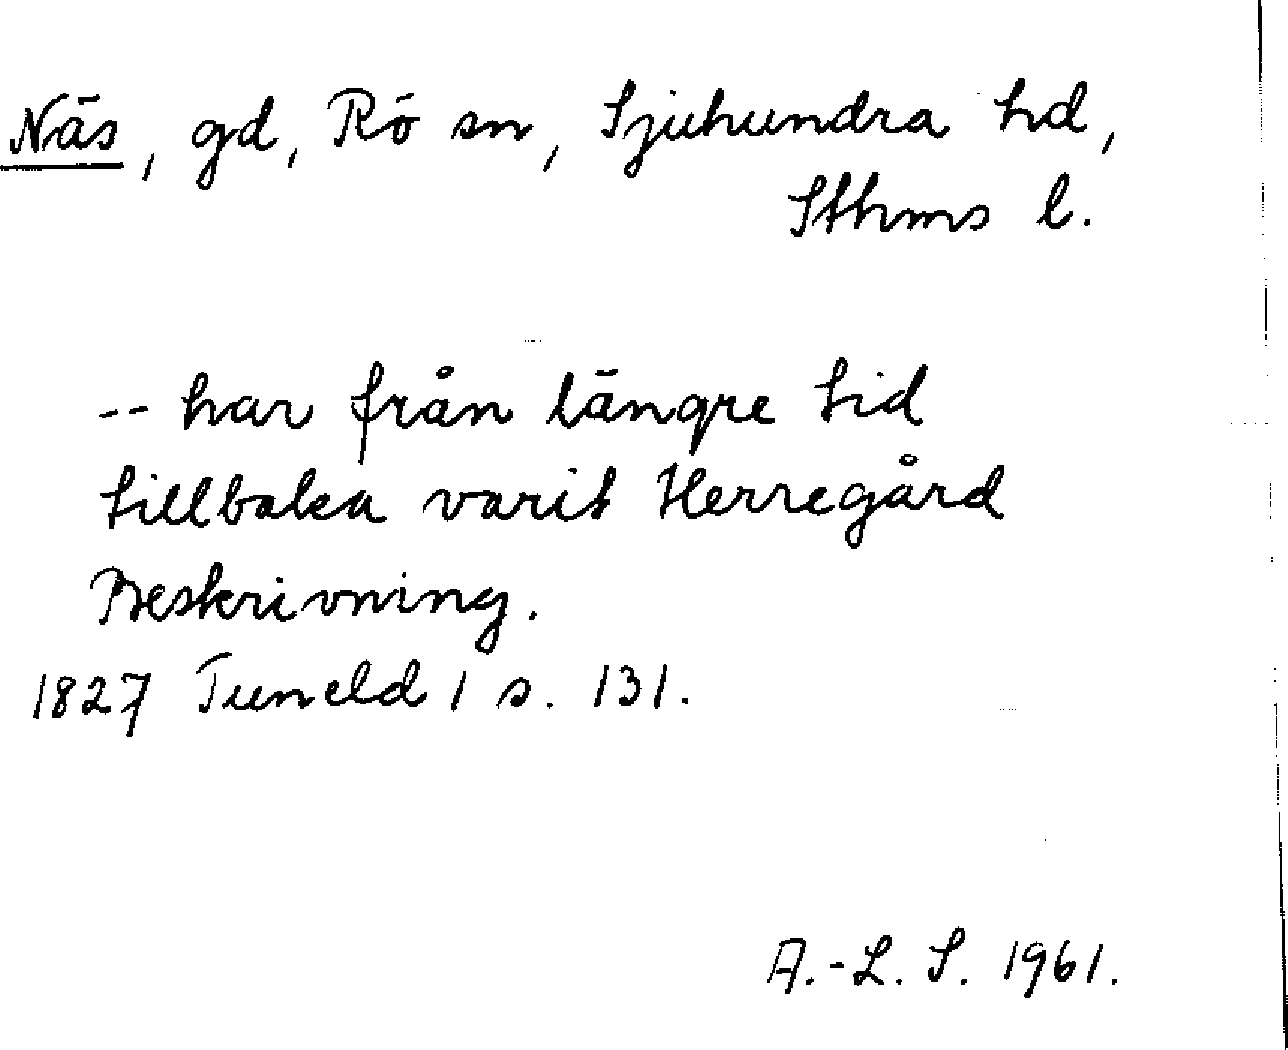 Näs, gd, Rö sn, Sjuhundra hd,
Sthms l.
-- har från längre tid
tillbaka varit Herregård
Beskrivning.
1827 Tuneld 1 s. 131.
A.-L. S. 1961.